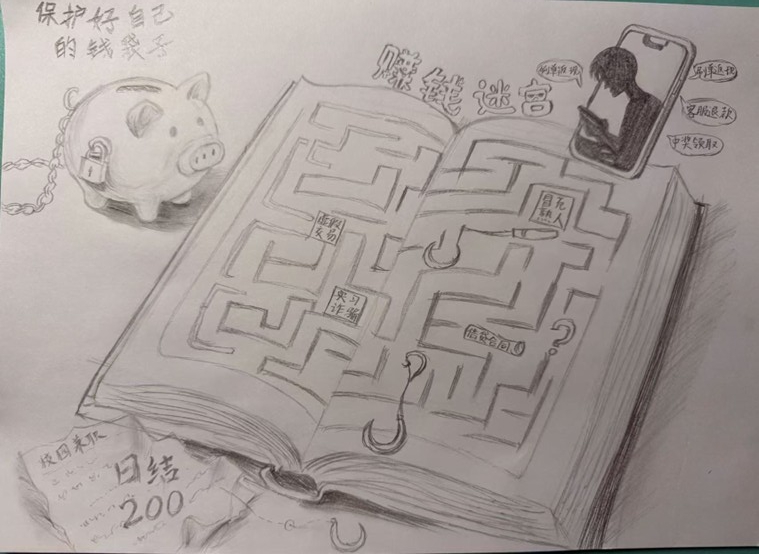 保护好自己
的钱袋子
赚钱迷宫
刷单返现
客服退款
中奖领取
冒充
熟人
虚假
交易
实习
诈骗
借贷合同
校园兼职
日结
200